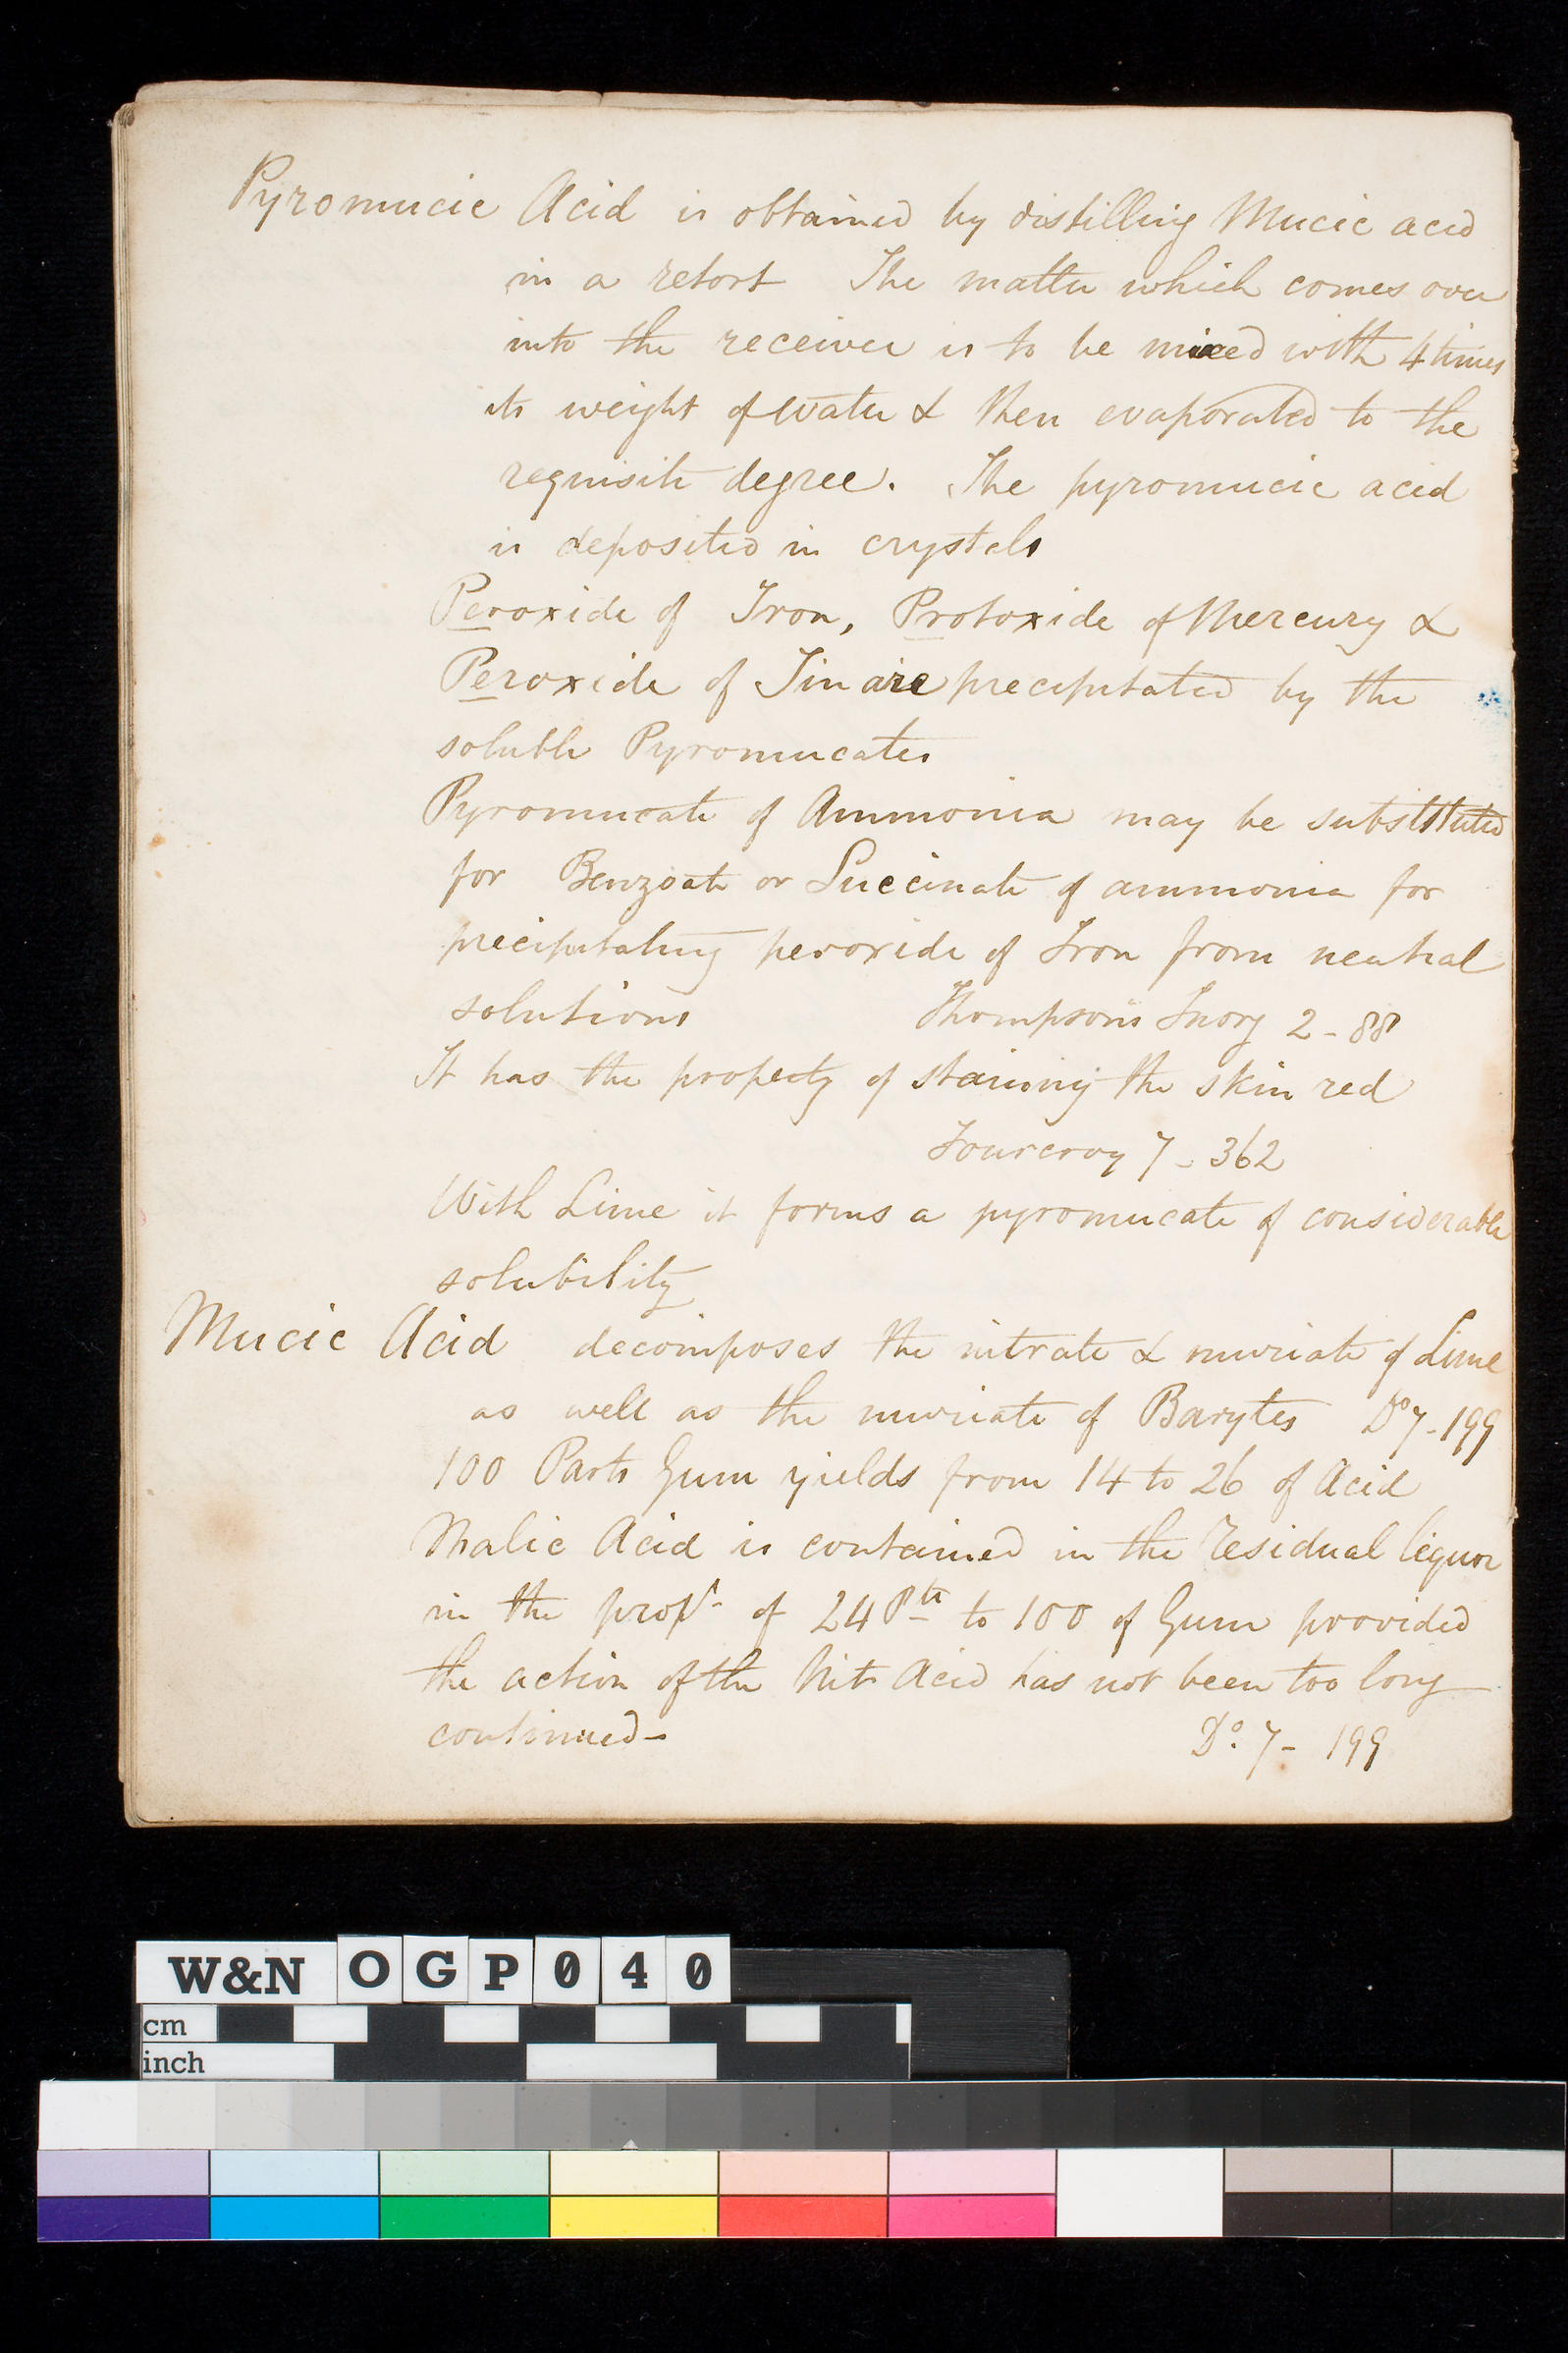 Pyromucic Acid is obtained by distilling Mucic acid
in a retort The matter which comes over
into the receiver is to be mixed with 4 times
its weight of water & then evaporated to the
requisite degree. The pyromucic acid
is deposited in crystals
Peroxide of Iron, Protoxide of Mercury &
Peroxide of Tin are precipitated by the
soluble Pyromucates
Pyromucate of Ammonia may be substituted
for Benzoate or Succinate of ammonia for
precipitating peroxide of Iron from neutral
solutions Thompson's Inorg 2-88
It has the property of staining the skin red
Fourcroy 7-362
With Lime it forms a pyromucate of considerable
solubility
Mucic Acid decomposes the nitrate & muriate of Lime
as well as the muriate of Barytes Do 7-199
100 Parts Gum yields from 14 to 26 of Acid
Malic Acid is contained in the residual liquor
in the propn of 24 Pts to 100 of Gum provided
the action of the Nit Acid has not been too long
continued-
Do. 7- 199
W&N OGP040
cm
inch